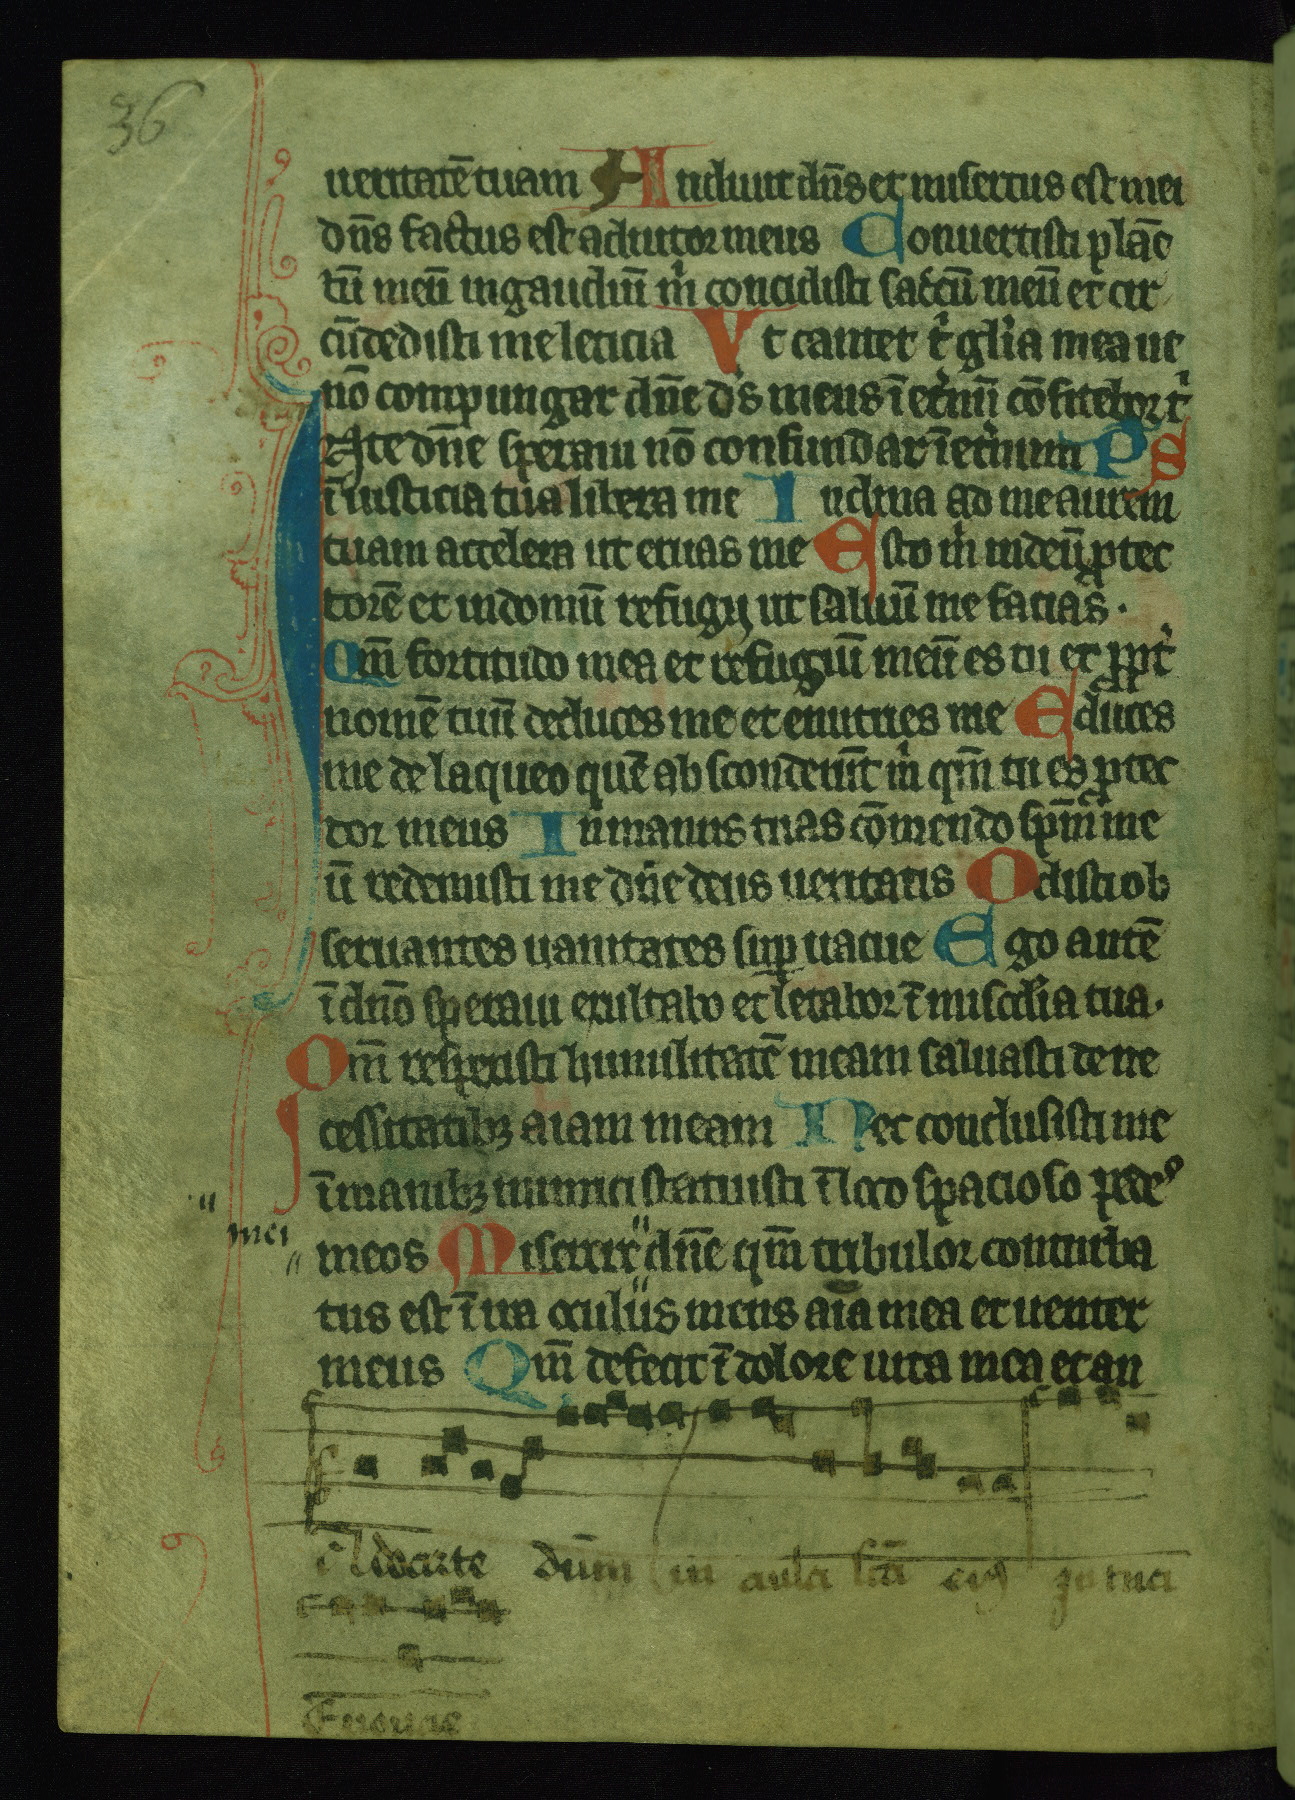 36
ueritatē tuam Audiuit dn̄s et misertus est mei
dn̄s factus est adiutor meus Conuertisti planc̄
tū meū in gaudiū m̍ concidisti saccū meū et cir
cūdedisti me leticia Vt cantet t̍ gl̍ia mea ut
nō compungar dn̄e d̍s meus ī et̍nū cōfitebor t̍
IN te dn̄e speraui nō confundar ī et̍num PS
ī iusticia tua libera me Inclina ad me aurem
tuam accelera ut eruas me Esto m̍ in deū ꝓtec
torē et in domū refugij ut saluū me facias ·
Qm̄ fortitudo mea et refugiū meū es tu et ꝓpt̍
nomē tuū deduces me et enutries me Educes
me de laqueo quē absconderūt m̍ qm̄ tu es ꝓtec
tor meus In manus tuas cōmendo spm̄ me
ū redemisti me dn̄e deus ueritatis Odisti ob
seruantes uanitates suꝑuacue Ego autē
ī dn̄o speraui exultabo et letabor ī mis̄cdia tua ·
Qm̄ respexisti humilitatē meam saluasti de ne
cessitatibꝫ aīam meam Nec conclusisti me
ī manibꝫ inimici statuisti ī loco spacioso pedes
mei
meos Miserer̄ dn̄e qm̄ tribulor conturba
tus est ī ira oculus meus aīa mea et uenter
meus Qm̄ defecit ī dolore uita mea et an
dūm in aula scā eiꝰ
Euouae